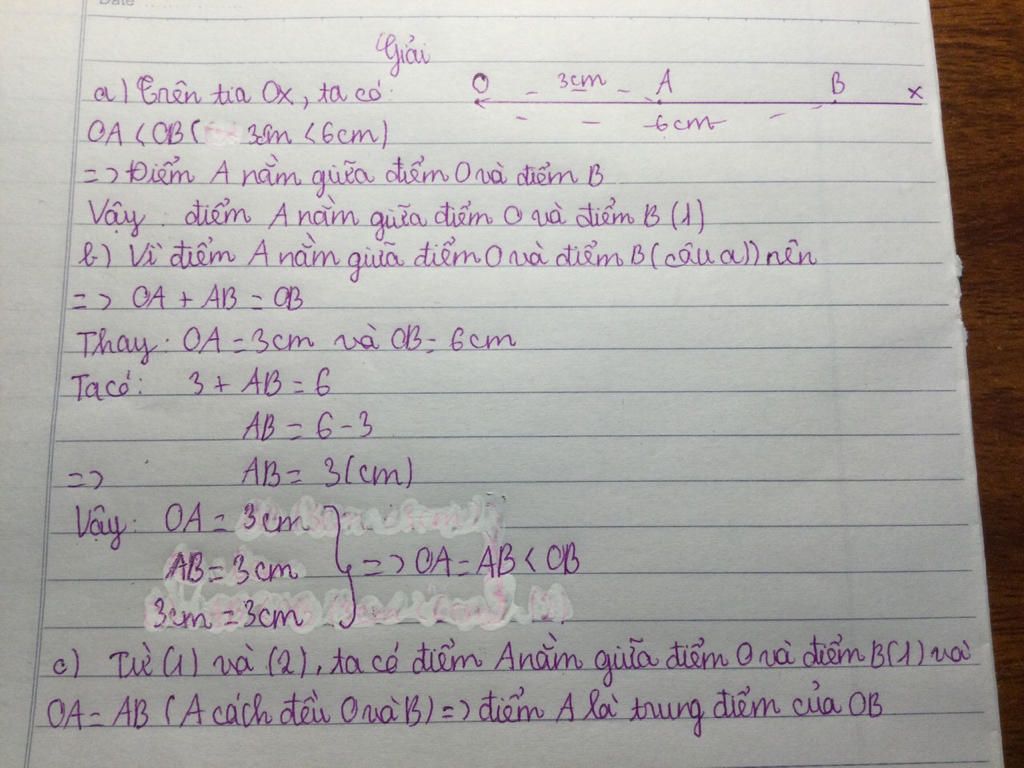 Date
Giải
O 3cm A B x
6cm
a) Trên tia Ox, ta có:
OA < OB ( 3cm < 6cm)
=> Điểm A nằm giữa điểm O và điểm B
Vậy: điểm A nằm giữa điểm O và điểm B (1)
b) Vì điểm A nằm giữa điểm O và điểm B (câu a)) nên
=> OA + AB = OB
Thay: OA = 3cm và OB = 6cm
Ta có: 3 + AB = 6
AB = 6 - 3
=> AB = 3(cm)
Vậy: OA = 3cm
AB = 3cm } => OA = AB < OB
3cm = 3cm
c) Từ (1) và (2), ta có điểm A nằm giữa điểm O và điểm B (1) và
OA = AB (A cách đều O và B) => điểm A là trung điểm của OB